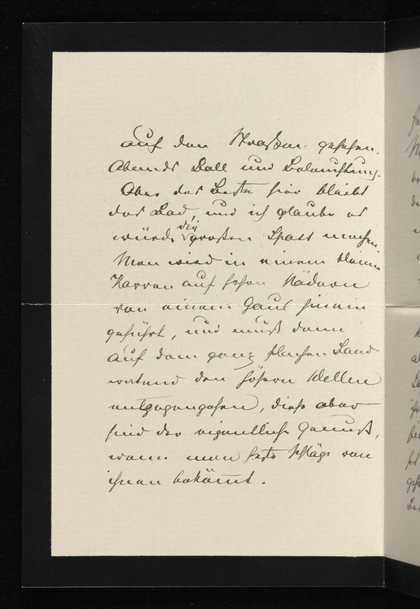 auf den Straßen gesehen.
Abends Ball und Beleuchtung.
Aber das Beste hier bleibt
das Bad, und ich glaube es
würde dir großen Spaß machen.
Man wird in einem kleinen
Karren auf hohen Rädern
von einem Gaul hinein
geführt, und muß dann
auf dem ganz flachen Sand
watend den höhern Wellen
entgegengehen, diese aber
sind der eigentliche Genuß,
wenn man feste Schläge von
ihnen bekommt.